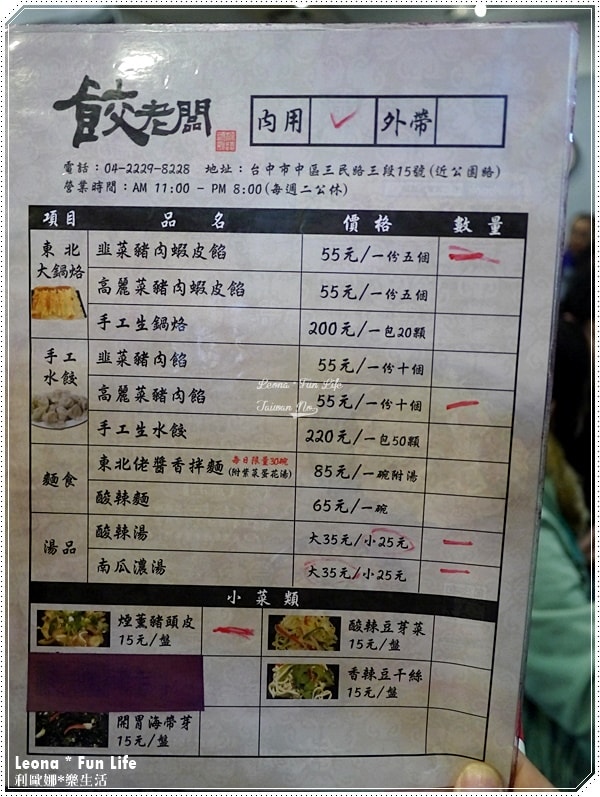 餃老闆
內用 ✓ 外帶
電話：04-2229-8228 地址：台中市中區三民路三段15號(近公園路)
營業時間：AM 11:00 - PM 8:00(每週二公休)
項目 品名 價格 數量
東北大鍋烙 韭菜豬肉蝦皮餡 55元/一份五個
高麗菜豬肉蝦皮餡 55元/一份五個
手工生鍋烙 200元/一包20顆
手工水餃 韭菜豬肉餡 55元/一份十個
高麗菜豬肉餡 55元/一份十個 一
手工生水餃 220元/一包50顆
麵食 東北佬醬香拌麵 每日限量30碗 (附紫菜蛋花湯) 85元/一碗附湯
酸辣麵 65元/一碗
湯品 酸辣湯 大35元/小25元 一
南瓜濃湯 大35元/小25元 一
小菜類
煙薰豬頭皮 15元/盤
酸辣豆芽菜 15元/盤
香辣豆干絲 15元/盤
開胃海帶芽 15元/盤
Leona * Fun Life
Taiwan No.
Leona * Fun Life
利歐娜*樂生活